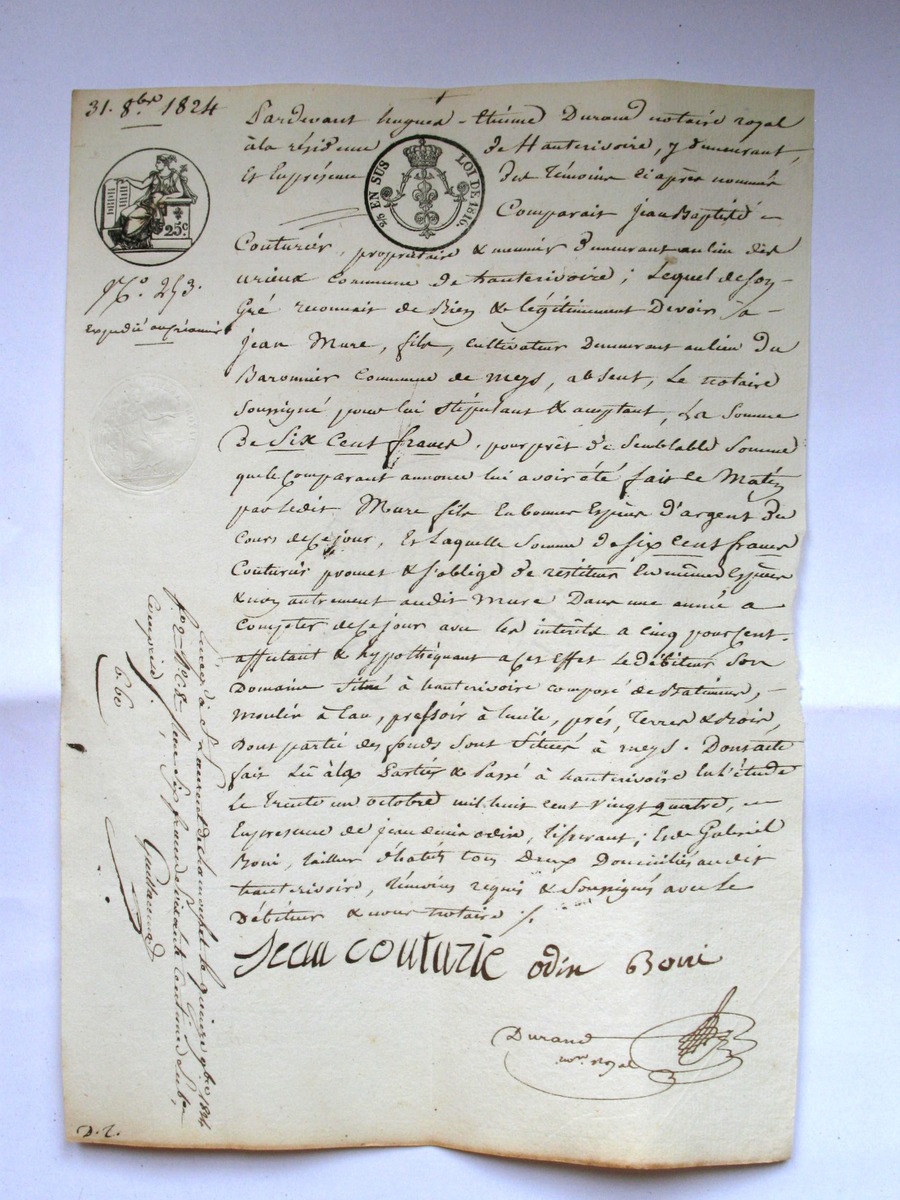 31. 8bre 1824
Pardevant hugues-thème Durand notaire royal
à la résidence de Hauterivoire, y demeurant,
Et En présence des Témoins ci après nommés
2/5 EN SUS LOI DE 1816.
25c.
Comparait Jean Baptiste
Couturier, propriétaire & meunier demeurant au lieu dit
urieux Commune de hauterivoire; Lequel de son
Gré reconnait de Bien & légitimement Devoir à
No. 253.
Expédié au Créancier
jean Mure, fils, cultivateur Demeurant au lieu du
Baronnier Commune de Meys, absent, Le notaire
Soussigné pour lui Stipulant & acceptant, La Somme
De Six Cent francs, pour prêt de Semblable Somme
que le Comparant annonce lui avoir été fait le Matin
par ledit Mure fils En bonnes Espèces d'argent Du
Cours de Ce jour, Et Laquelle Somme de Six Cent francs
Couturier promet & s'oblige de restituer En mêmes Espèces
& non autrement audit Mure Dans une année a
Compter de Ce jour avec les interêts a Cinq pour Cent.
affectant & hypothéquant a Cet Effet Le débiteur Son
Domaine Situé à hauterivoire composé de Batiments,
Moulin à Eau, pressoir à huile, prés, Terres & Bois,
Dont partie des fonds Sont Situés à meys. Dont acte
fait Lu à la Partie & Passé à hauterivoire En l'étude
Le Trente un octobre mil huit cent vingt quatre,
En présence de jean denis odin, tisserant; Et de Gabriel
Boni, tailleur d'habits tous Deux Domiciliés audit
hauterivoire, témoins requis & Soussignés avec Le
Débiteur & nous Notaire
Jean couturié odin Boni
Durand
nre Royal
Enreg. à St Laurent de chamousset le quinze 9bre 1824
fo Vo Ce Reçu Six francs Soixante Centimes Subv.
Comprise
6.60
D. 2.